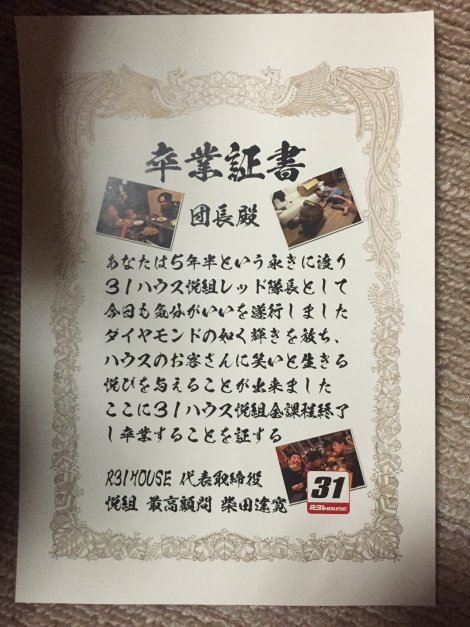 卒業証書
団長殿
あなたは5年半という永きに渡り
31ハウス悦組レッド隊長として
今日も気分がいいを遂行しました
ダイヤモンドの如く輝きを放ち、
ハウスのお客さんに笑いと生きる
悦びを与えることが出来ました
ここに31ハウス悦組全課程終了
し卒業することを証する
R31HOUSE 代表取締役
悦組 最高顧問 柴田達寛
31
R31HOUSE